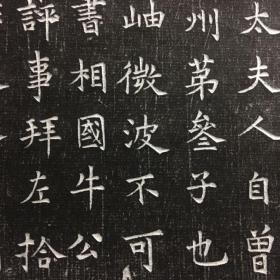 太夫人自曾
州苐叄子也
岫微波不可
書相國牛公
評事拜左拾